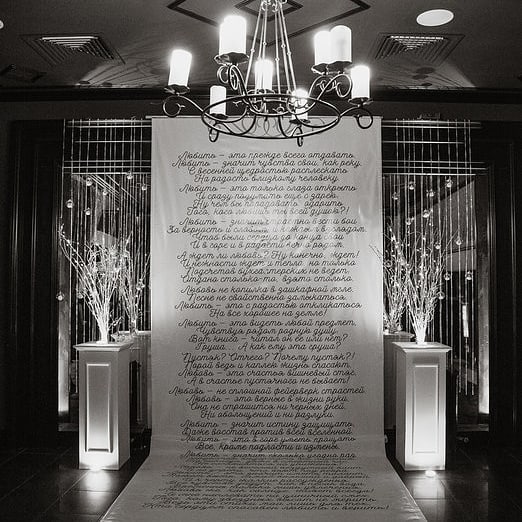 Любить – это прежде всего отдавать.
Любить – значит чувства свои, как реку,
С весенней щедростью расплескать
На радость близкому человеку.
Любить – это только глаза открыть
И сразу подумать еще с зарею:
Ну чем бы порадовать, одарить
Того, кого любишь ты всей душою?!
Любить – значит страстно вести бои
За верность и словом, и взглядом,
Чтоб были сердца до конца свои
И в горе и в радости вечно рядом.
А ждет ли любовь? Ну конечно, ждет!
И нежности ждет и тепла, но только
Подсчетов бухгалтерских не ведет:
Отдано столько-то, взято столько.
Любовь не копилка в зашкафной мгле.
Песне не свойственно замыкаться.
Любить – это с радостью откликаться
На все хорошее на земле!
Любить – это видеть любой предмет,
Чувствуя рядом родную душу:
Вот книга – читал он ее или нет?
Груша... А как ему эта груша?
Пустяк? Отчего? Почему пустяк?!
Порой ведь и каплею жизнь спасают.
Любовь – это счастья вишневый стяг,
А в счастье пустячного не бывает!
Любовь – не сплошной фейерверк страстей.
Любовь – это верные в жизни руки,
Она не страшится ни черных дней,
Ни обольщений и ни разлуки.
Любить – значит истину защищать,
Даже восстав против всей вселенной.
Любить – это в горе уметь прощать
Все, кроме подлости и измены.
Любить – значит сколько угодно раз